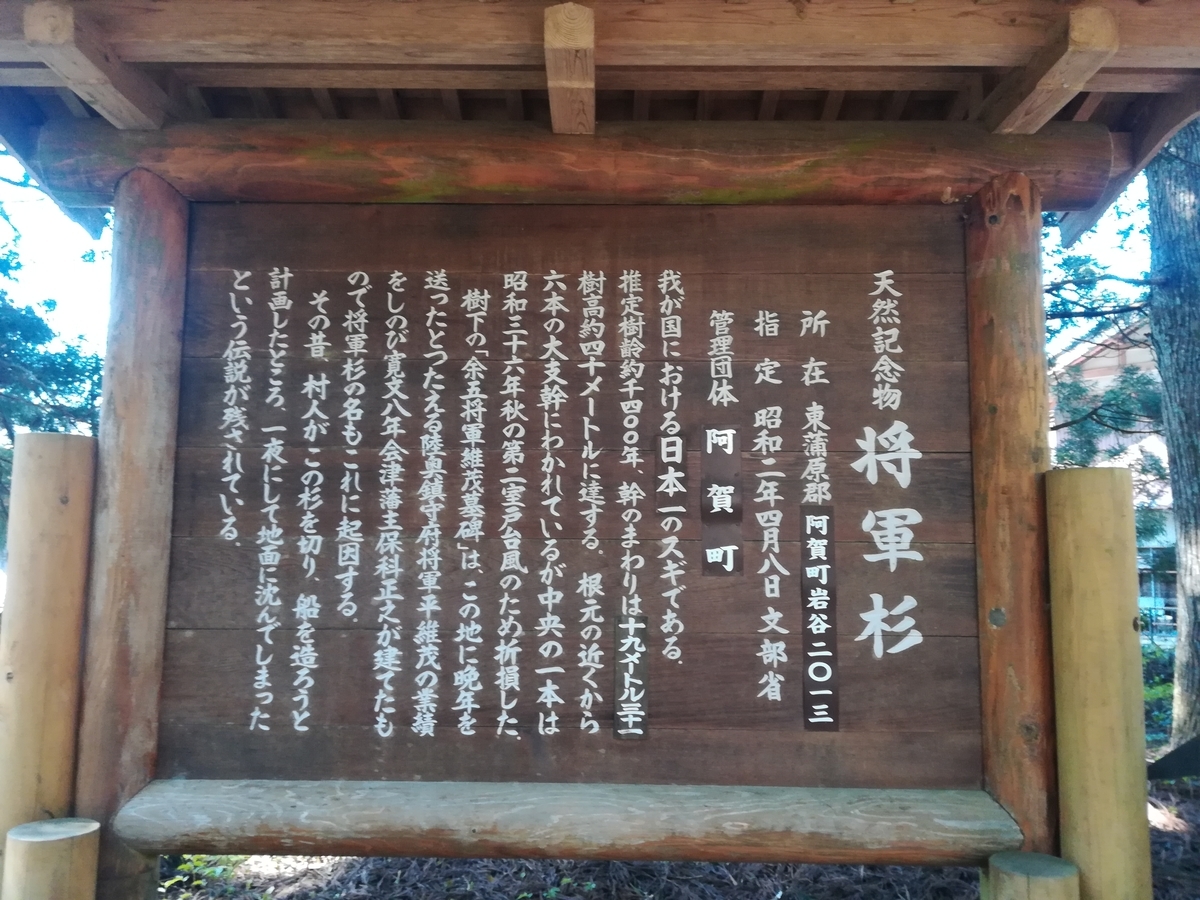 天然記念物 将軍杉
所在 東蒲原郡阿賀町岩谷二〇一三
指定 昭和二年四月八日 文部省
管理団体 阿賀町
我が国における日本一のスギである。
推定樹齢約千四〇〇年、幹のまわりは十九メートル三十一
樹高約四十メートルに達する。根元の近くから
六本の大支幹にわかれているが中央の一本は
昭和三十六年秋の第二室戸台風のため折損した。
樹下の「余五将軍維茂墓碑」は、この地に晩年を
送ったとつたえる陸奥鎮守府将軍平維茂の業績
をしのび寛文八年会津藩主保科正之が建てたも
ので将軍杉の名もこれに起因する。
その昔 村人がこの杉を切り、船を造ろうと
計画したところ、一夜にして地面に沈んでしまった
という伝説が残されている。